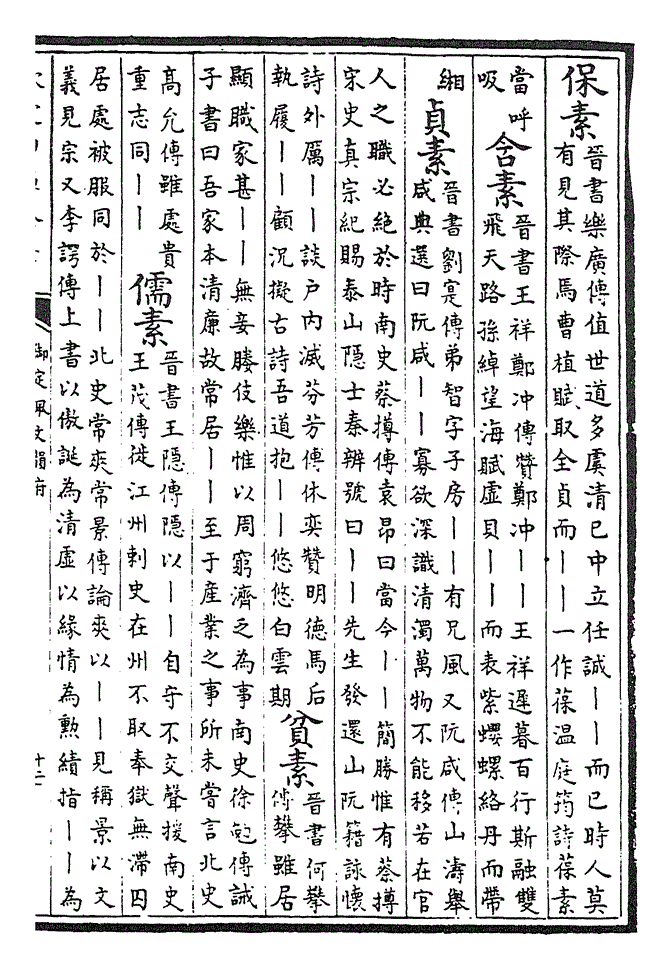 保素
晉書樂廣傳值世道多虞清已中立任誠丨丨而已時人莫
有見其際焉曹植賦取全貞而丨丨一作葆温庭筠詩葆素
當呼
吸
含素
晉書王祥鄭冲傳贊鄭冲丨丨王祥遲暮百行斯融雙
飛天路孫綽望海賦虚貝丨丨而表紫蠳螺絡丹而帶
緗
貞素
晉書劉寔傳弟智字子房丨丨有兄風又阮咸傳山濤舉
咸典選曰阮咸丨丨寡欲深識清濁萬物不能移若在官
人之職必絶於時南史蔡撙傳袁昂曰當今丨丨簡勝惟有蔡撙
宋史真宗紀賜泰山隱士秦辨號曰丨丨先生發還山阮籍詠懷
詩外厲丨丨談户内滅芬芳傅休奕贊明德馬后
執履丨丨顧況擬古詩吾道抱丨丨悠悠白雲期
貧素
晉書何攀
傳攀雖居
顯職家甚丨丨無妾媵伎樂惟以周窮濟乏為事南史徐勉傳誡
子書曰吾家本清廉故常居丨丨至于産業之事所未嘗言北史
高允傳雖處貴
重志同丨丨
儒素
晉書王隱傳隱以丨丨自守不交聲援南史
王茂傳徙江州刺史在州不取奉獄無滯囚
居處被服同於丨丨北史常爽常景傳論爽以丨丨見稱景以文
義見宗又李諤傳上書以傲誕為清虚以緣情為勲績指丨丨為
御定佩文韻府
十二